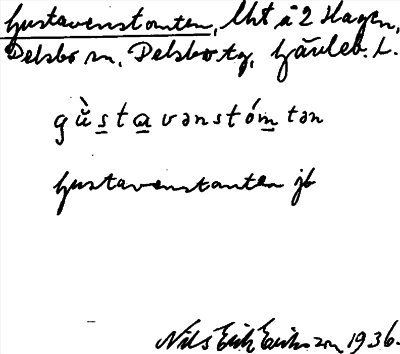 Gustavenstomten, Lht å 2 Hagen,
Delsbo sn, Delsbo tg, Gävleb. L.
gù̆stavənstómtən
Gustavenstomten jb
Nils Erik Eriksson 1936.